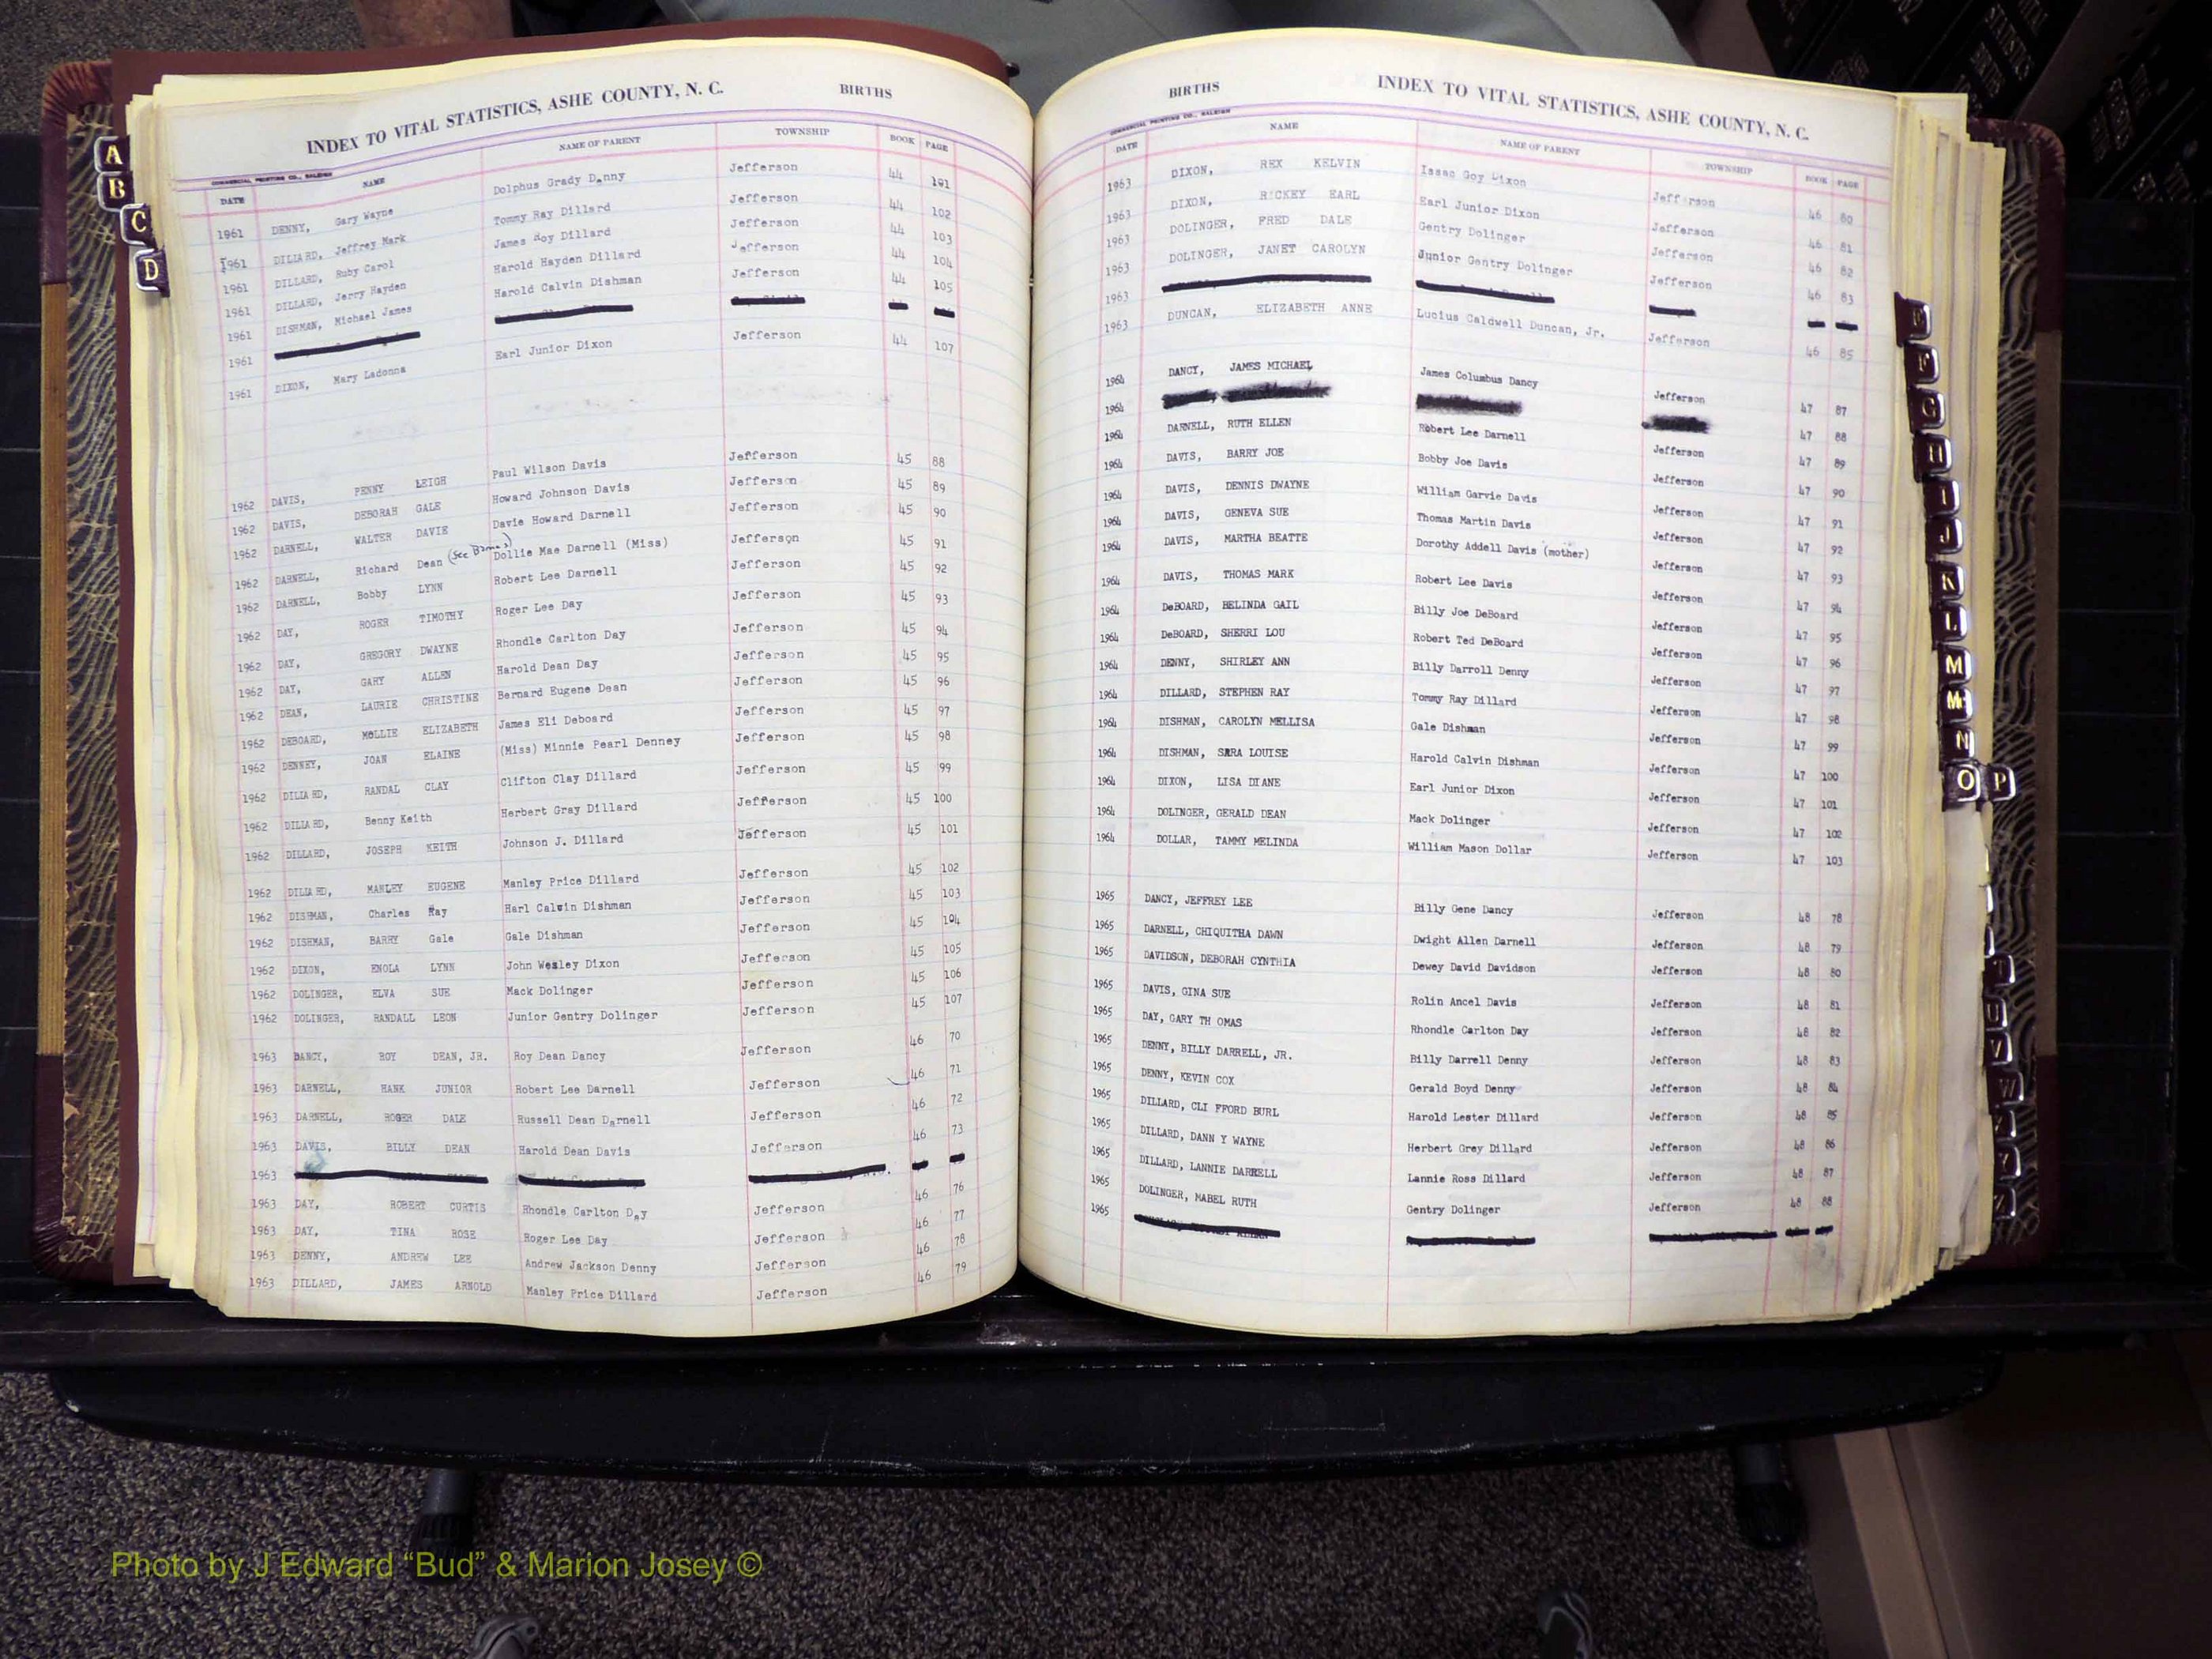 INDEX TO VITAL STATISTICS, ASHE COUNTY, N. C. BIRTHS
COMMERCIAL PRINTING CO., RALEIGH
DATE NAME NAME OF PARENT TOWNSHIP BOOK PAGE
1961 DENNY, Gary Wayne Dolphus Grady Denny Jefferson 44 101
1961 DILLARD, Jeffrey Mark Tommy Ray Dillard Jefferson 44 102
1961 DILLARD, Ruby Carol James Roy Dillard Jefferson 44 103
1961 DILLARD, Jerry Hayden Harold Hayden Dillard Jefferson 44 104
1961 DISHMAN, Michael James Harold Calvin Dishman Jefferson 44 105
1961
1961 DIXON, Mary Ladonna Earl Junior Dixon Jefferson 44 107
1962 DAVIS, PENNY LEIGH Paul Wilson Davis Jefferson 45 88
1962 DAVIS, DEBORAH GALE Howard Johnson Davis Jefferson 45 89
1962 DARNELL, WALTER DAVIE Davie Howard Darnell Jefferson 45 90
1962 DARNELL, Richard Dean (See Dollie Mae Darnell (Miss) Jefferson 45 91
1962 DARNELL, Bobby LYNN Robert Lee Darnell Jefferson 45 92
1962 DAY, ROGER TIMOTHY Roger Lee Day Jefferson 45 93
1962 DAY, GREGORY DWAYNE Rhondle Carlton Day Jefferson 45 94
1962 DAY, GARY ALLEN Harold Dean Day Jefferson 45 95
1962 DEAN, LAURIE CHRISTINE Bernard Eugene Dean Jefferson 45 96
1962 DEBOARD, MOLLIE ELIZABETH James Eli Deboard Jefferson 45 97
1962 DENNEY, JOAN ELAINE (Miss) Minnie Pearl Denney Jefferson 45 98
1962 DILLARD, RANDAL CLAY Clifton Clay Dillard Jefferson 45 99
1962 DILLARD, Benny Keith Herbert Gray Dillard Jefferson 45 100
1962 DILLARD, JOSEPH KEITH Johnson J. Dillard Jefferson 45 101
1962 DILLARD, MANLEY EUGENE Manley Price Dillard Jefferson 45 102
1962 DISHMAN, Charles Ray Harl Calvin Dishman Jefferson 45 103
1962 DISHMAN, BARRY Gale Gale Dishman Jefferson 45 104
1962 DIXON, ENOLA LYNN John Wesley Dixon Jefferson 45 105
1962 DOLINGER, ELVA SUE Mack Dolinger Jefferson 45 106
1962 DOLINGER, RANDALL LEON Junior Gentry Dolinger Jefferson 45 107
1963 DANCY, ROY DEAN, JR. Roy Dean Dancy Jefferson 46 70
1963 DARNELL, HANK JUNIOR Robert Lee Darnell Jefferson 46 71
1963 DARNELL, ROGER DALE Russell Dean Darnell Jefferson 46 72
1963 DAVIS, BILLY DEAN Harold Dean Davis Jefferson 46 73
1963
1963 DAY, ROBERT CURTIS Rhondle Carlton Day Jefferson 46 76
1963 DAY, TINA ROSE Roger Lee Day Jefferson 46 77
1963 DENNY, ANDREW LEE Andrew Jackson Denny Jefferson 46 78
1963 DILLARD, JAMES ARNOLD Manley Price Dillard Jefferson 46 79
BIRTHS INDEX TO VITAL STATISTICS, ASHE COUNTY, N. C.
COMMERCIAL PRINTING CO., RALEIGH
DATE NAME NAME OF PARENT TOWNSHIP BOOK PAGE
1963 DIXON, REX KELVIN Issac Goy Dixon Jefferson 46 80
1963 DIXON, RICKEY EARL Earl Junior Dixon Jefferson 46 81
1963 DOLINGER, FRED DALE Gentry Dolinger Jefferson 46 82
1963 DOLINGER, JANET CAROLYN Junior Gentry Dolinger Jefferson 46 83
1963
1963 DUNCAN, ELIZABETH ANNE Lucius Caldwell Duncan, Jr. Jefferson 46 85
1964 DANCY, JAMES MICHAEL James Columbus Dancy Jefferson 47 87
1964 47 88
1964 DARNELL, RUTH ELLEN Robert Lee Darnell Jefferson 47 89
1964 DAVIS, BARRY JOE Bobby Joe Davis Jefferson 47 90
1964 DAVIS, DENNIS DWAYNE William Garvie Davis Jefferson 47 91
1964 DAVIS, GENEVA SUE Thomas Martin Davis Jefferson 47 92
1964 DAVIS, MARTHA BEATTE Dorothy Addell Davis (mother) Jefferson 47 93
1964 DAVIS, THOMAS MARK Robert Lee Davis Jefferson 47 94
1964 DeBOARD, BELINDA GAIL Billy Joe DeBoard Jefferson 47 95
1964 DeBOARD, SHERRI LOU Robert Ted DeBoard Jefferson 47 96
1964 DENNY, SHIRLEY ANN Billy Darroll Denny Jefferson 47 97
1964 DILLARD, STEPHEN RAY Tommy Ray Dillard Jefferson 47 98
1964 DISHMAN, CAROLYN MELLISA Gale Dishman Jefferson 47 99
1964 DISHMAN, SARA LOUISE Harold Calvin Dishman Jefferson 47 100
1964 DIXON, LISA DIANE Earl Junior Dixon Jefferson 47 101
1964 DOLINGER, GERALD DEAN Mack Dolinger Jefferson 47 102
1964 DOLLAR, TAMMY MELINDA William Mason Dollar Jefferson 47 103
1965 DANCY, JEFFREY LEE Billy Gene Dancy Jefferson 48 78
1965 DARNELL, CHIQUITHA DAWN Dwight Allen Darnell Jefferson 48 79
1965 DAVIDSON, DEBORAH CYNTHIA Dewey David Davidson Jefferson 48 80
1965 DAVIS, GINA SUE Rolin Ancel Davis Jefferson 48 81
1965 DAY, GARY TH OMAS Rhondle Carlton Day Jefferson 48 82
1965 DENNY, BILLY DARRELL, JR. Billy Darrell Denny Jefferson 48 83
1965 DENNY, KEVIN COX Gerald Boyd Denny Jefferson 48 84
1965 DILLARD, CLI FFORD BURL Harold Lester Dillard Jefferson 48 85
1965 DILLARD, DANN Y WAYNE Herbert Grey Dillard Jefferson 48 86
1965 DILLARD, LANNIE DARRELL Lannie Ross Dillard Jefferson 48 87
1965 DOLINGER, MABEL RUTH Gentry Dolinger Jefferson 48 88
1965
A
B
C
D
E
F
G
H
I
J
K
L
M
Mc
N
O P
T
U
V
W
Photo by J Edward “Bud” & Marion Josey ©